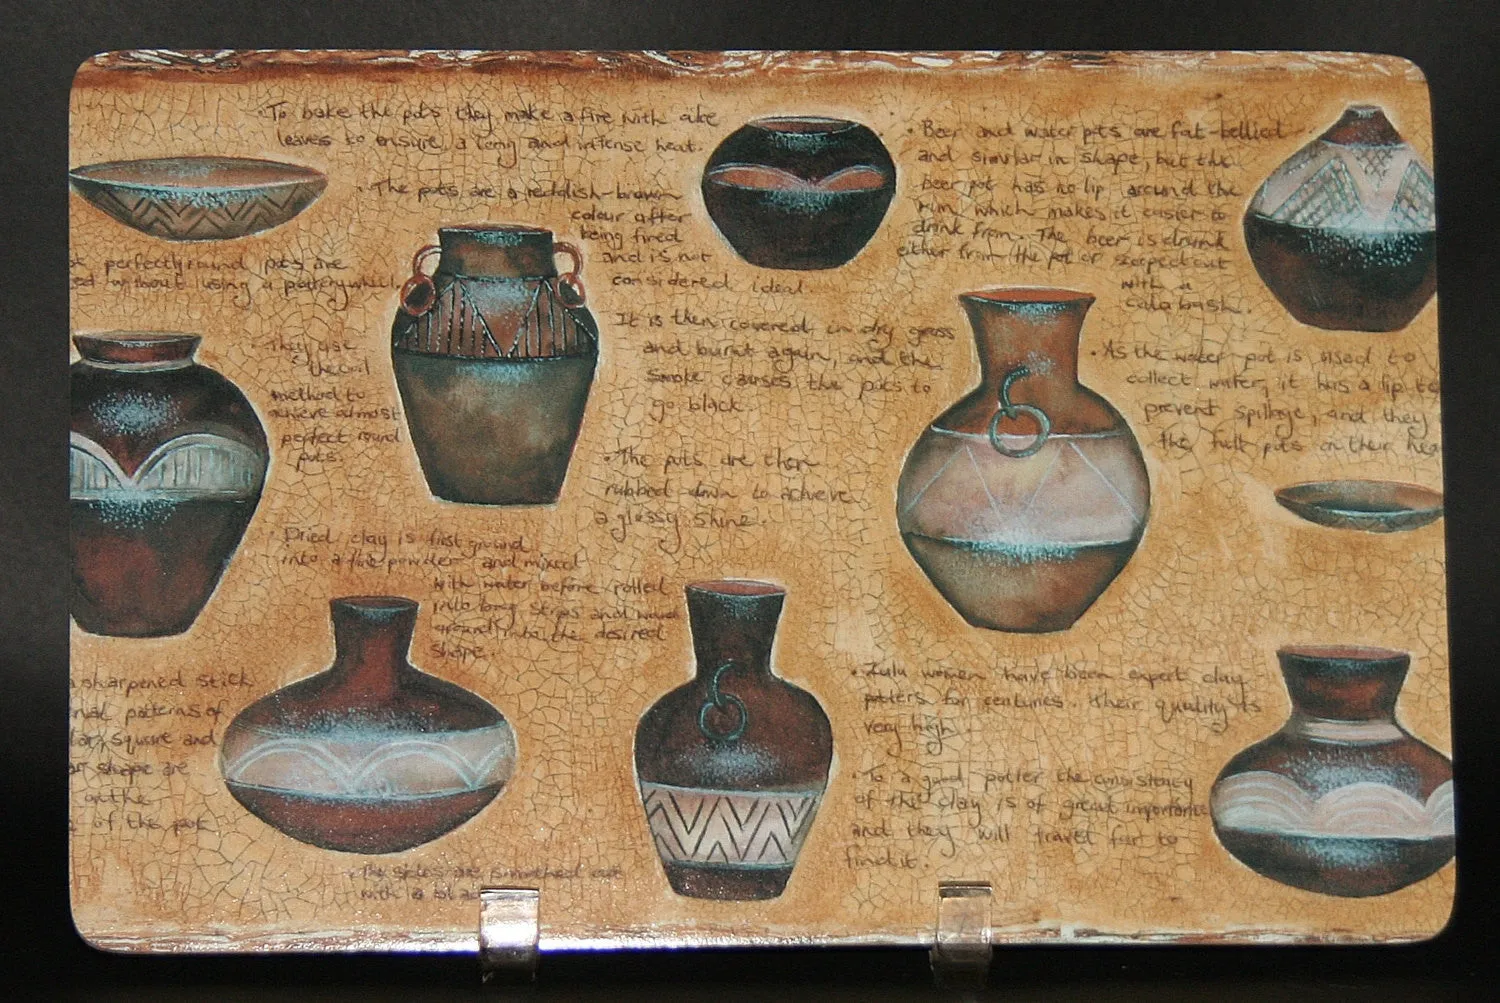 · To bake the pots they make a fire with aloe
leaves to ensure a long and intense heat.
· The pots are a reddish-brown
colour after
being fired
and is not
considered ideal.
It is then covered in dry grass
and burnt again, and the
smoke causes the pots to
go black.
· The pots are then
rubbed down to achieve
a glossy shine.
perfectly round pots are
without using a pottery wheel.
· They use
the coil
method to
achieve almost
perfect round
pots.
· Dried clay is first ground
into a fine powder and mixed
with water before rolled
into long strips and wound
around into the desired
shape.
a sharpened stick
patterns of
square and
shape are
on the
of the pot
· The sides are smoothed out
with a
· Beer and water pots are fat-bellied
and similar in shape, but the
beer pot has no lip around the
rim which makes it easier to
drink from. The beer is drunk
either from the pot or scooped out
with a
calabash.
· As the water pot is used to
collect water, it has a lip to
prevent spillage, and they
the full pots on their
· Zulu women have been expert clay
potters for centuries. Their quality is
very high.
· To a good potter the consistency
of the clay is of great importance
and they will travel far to
find it.